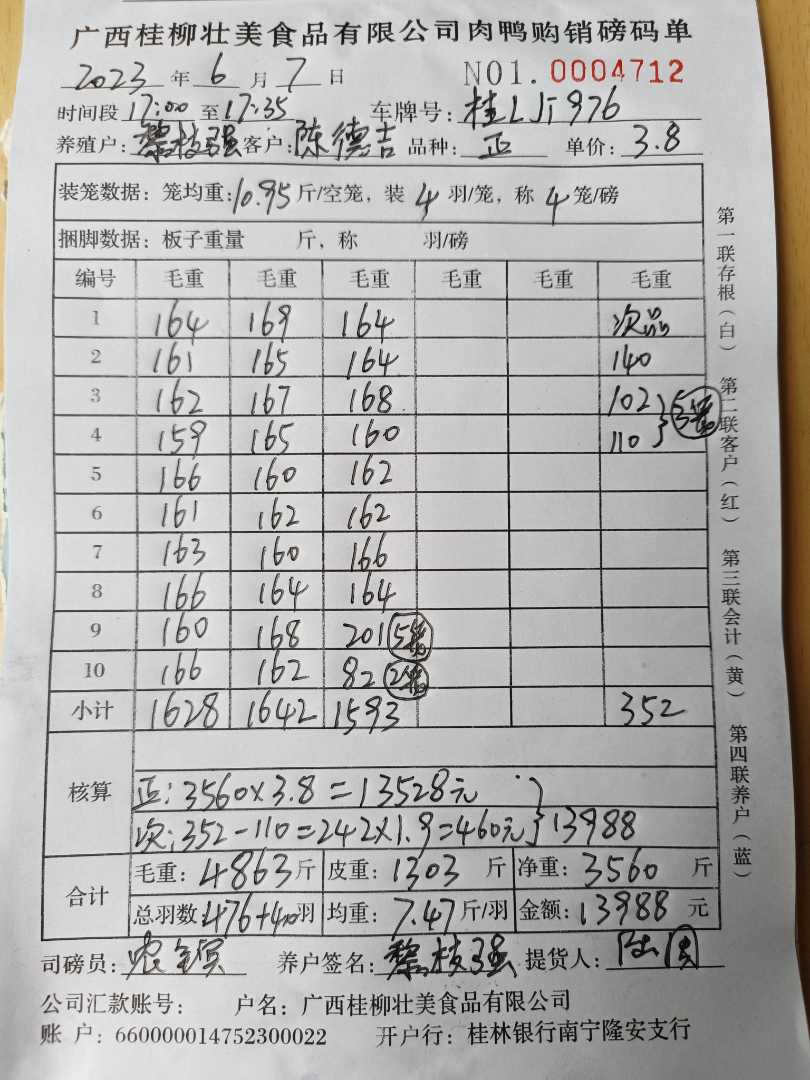 广西桂柳壮美食品有限公司肉鸭购销磅码单
2023 年 6 月 7 日 NO1. 0004712
时间段 17:00 至 17:35 车牌号: 桂LJT976
养殖户: 黎枝强 客户: 陈德吉 品种: 正 单价: 3.8
装笼数据: 笼均重: 10.95 斤/空笼, 装 4 羽/笼, 称 4 笼/磅
捆脚数据: 板子重量 斤, 称 羽/磅
编号 毛重 毛重 毛重 毛重 毛重 毛重
1 164 169 164 次品
2 161 165 164 140
3 162 167 168 102
4 159 165 160 110 } 5笼
5 166 160 162
6 161 162 162
7 163 160 166
8 166 164 164
9 160 168 201 5笼
10 166 162 82 2笼
小计 1628 1642 1593 352
核算
正: 3560×3.8=13528元
次: 352-110=242×1.9=460元 } 13988
合计 毛重: 4863 斤 皮重: 1303 斤 净重: 3560 斤
总羽数: 476+40 羽 均重: 7.47 斤/羽 金额: 13988 元
司磅员: 养户签名: 黎枝强 提货人:
公司汇款账号: 户名: 广西桂柳壮美食品有限公司
账 户: 660000014752300022 开户行: 桂林银行南宁隆安支行
第一联存根(白) 第二联客户(红) 第三联会计(黄) 第四联养户(蓝)